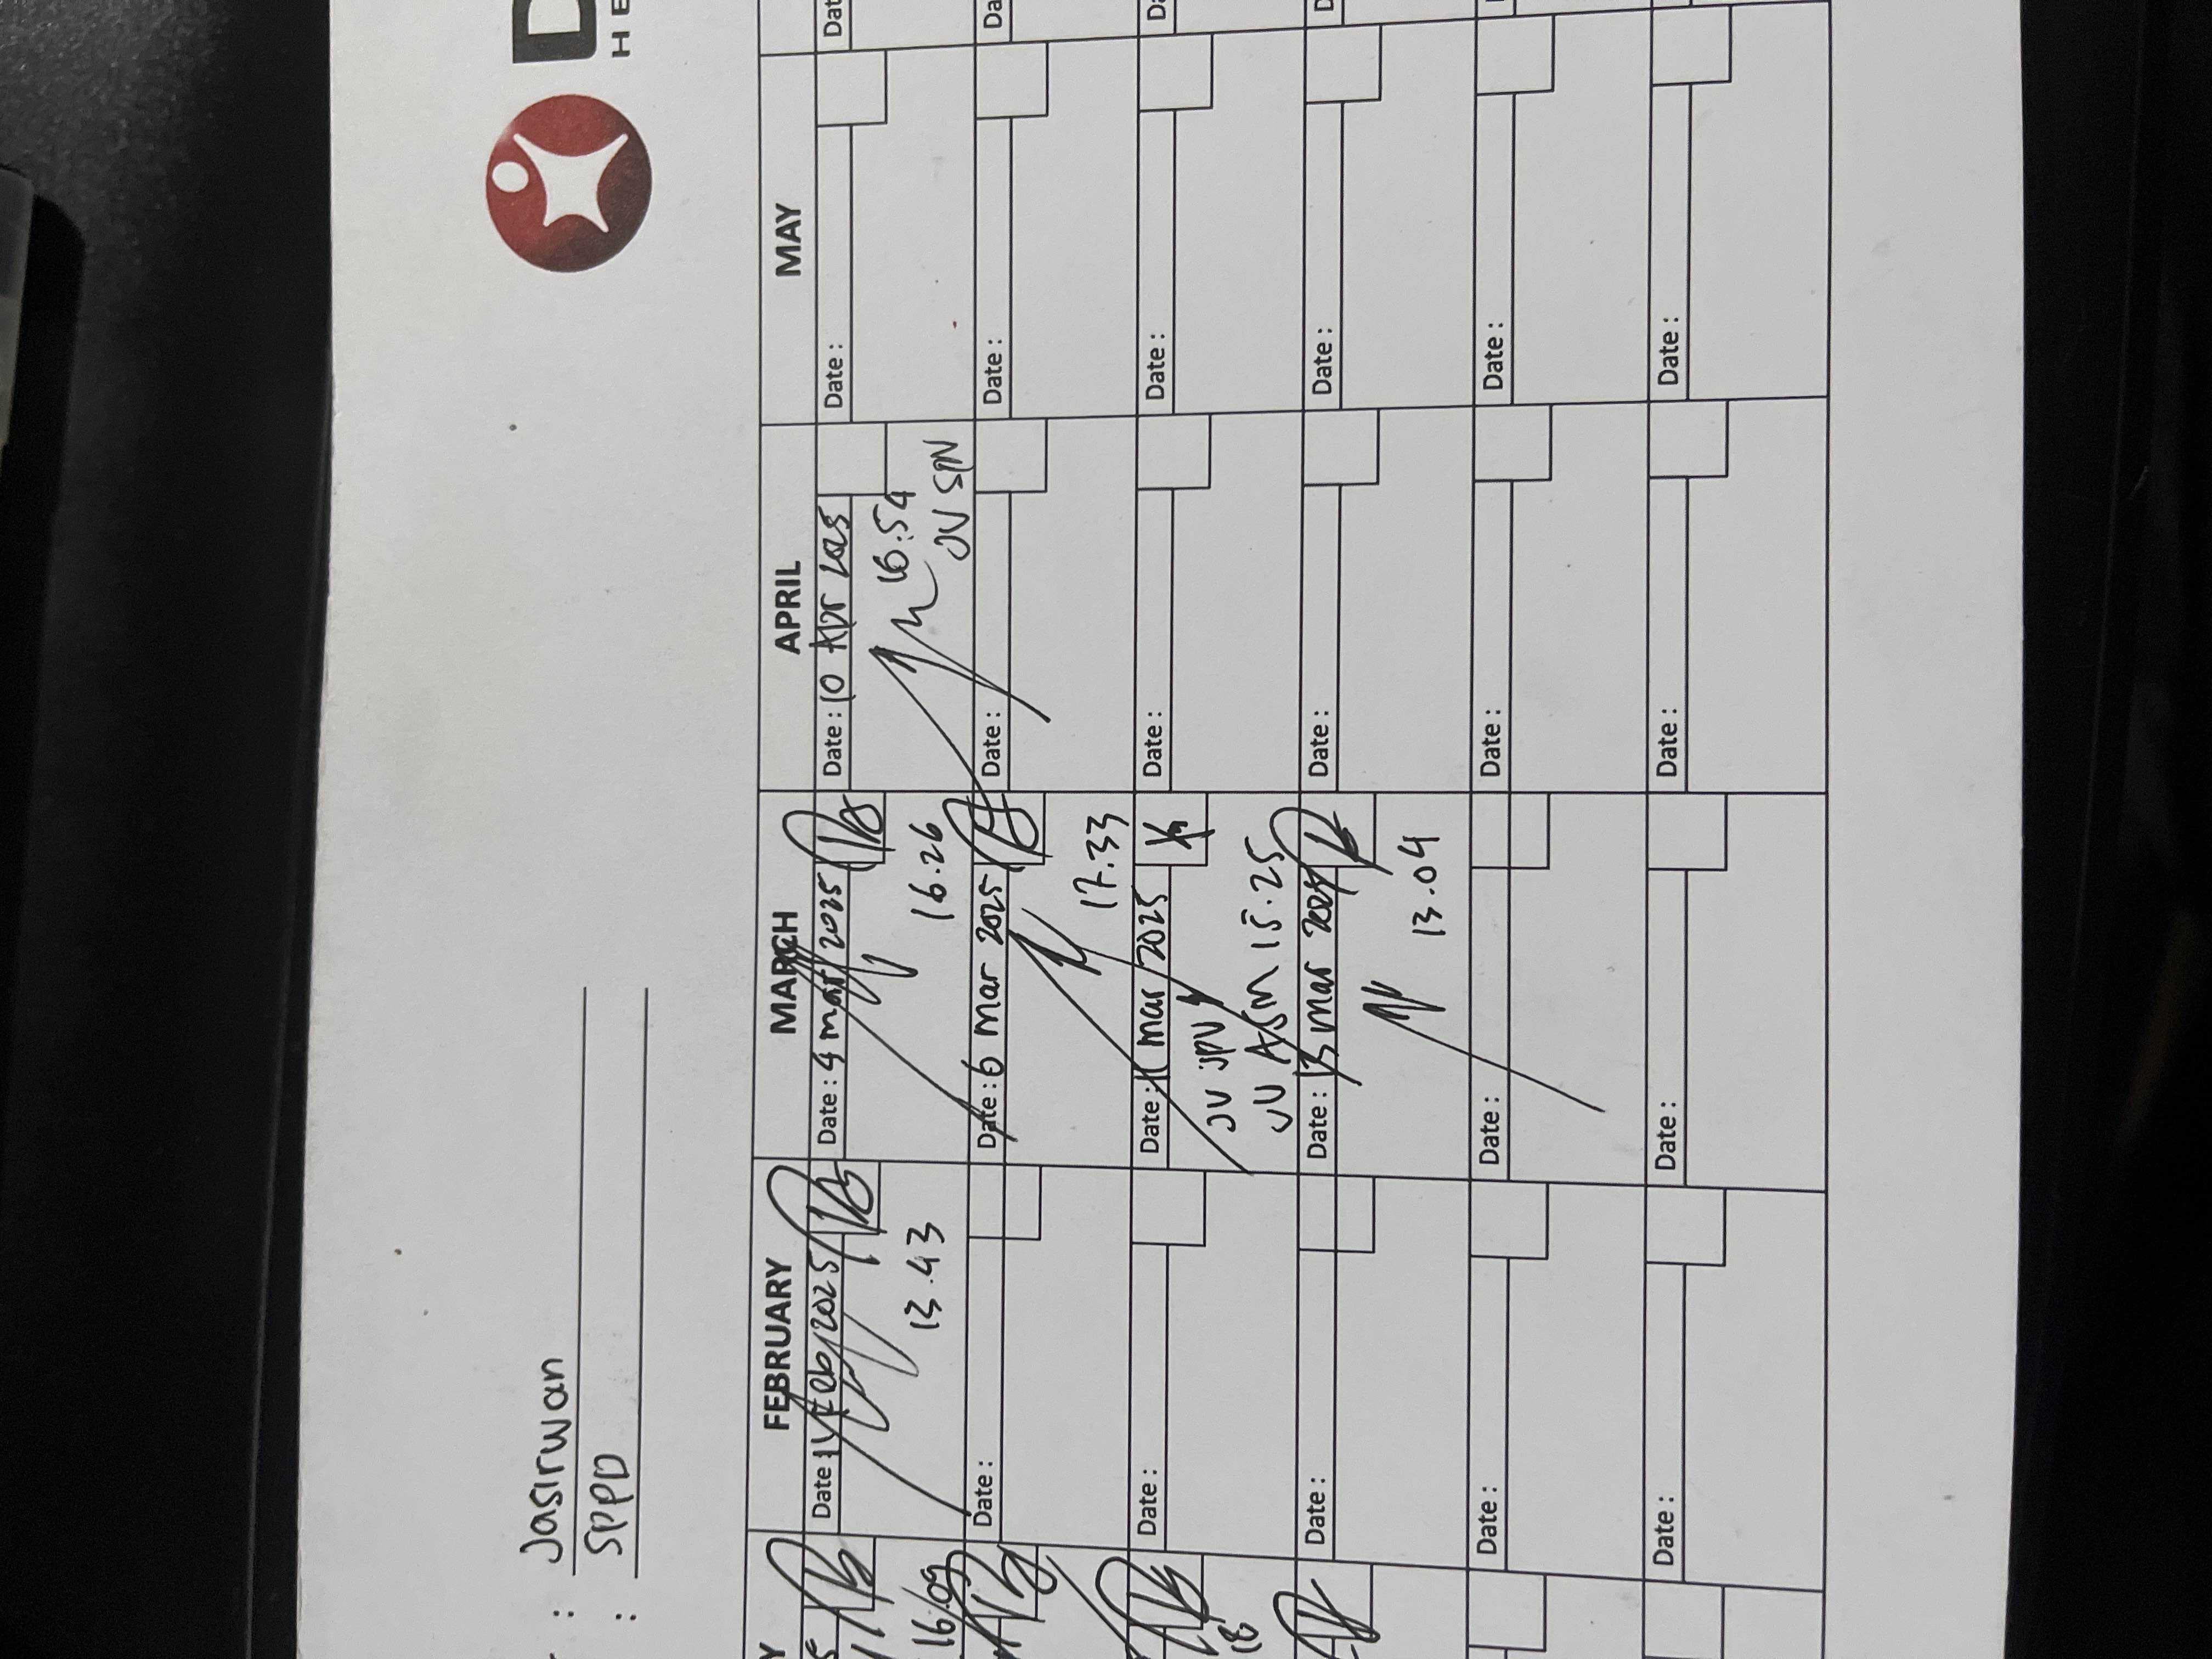 D
HE
: Jasirwan
: SPPD
Y FEBRUARY MARCH APRIL MAY
5 Date : Feb 2025 Date : 4 mar 2025 Date : 10 Apr Date : Dat
16.09 13.43 16.26 16.54
JV SPN
Date : Date : 6 mar 2025 Date : Date : Da
17.33
Date : Date : 11 mar 2025 Date : Date : Da
18 JV SPV
JV ASM 15.25
Date : Date : 13 mar 2025 Date : Date : D
13.04
Date : Date : Date : Date :
Date : Date : Date : Date :